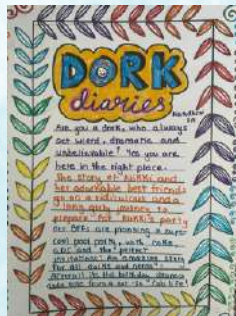 DORK
diaries
Are you a dork, who always
act weird, dramatic and
unbelievable? Yes you are
here in the right place.
The story of Nikki and
her adorable best friends
go on a ridiculous and a
long journey to
prepare for Nikki's party
Her BFFs are planning a super
cool pool party, with cake,
and the
invitations! An amazing story
for all dorks and nerds!